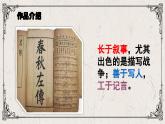 作品介绍
春秋左傳
长于叙事，尤其
出色的是描写战
争；善于写人，
工于记言。